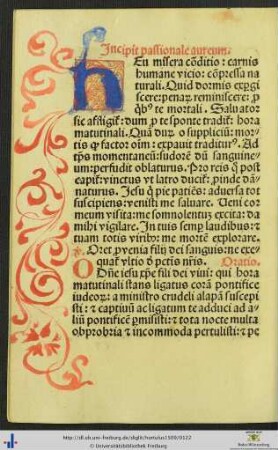 Incipit passionale aureum.
HEu misera cōditio: carnis
humane vicio: cōpressa na
turali. Quid dormis expgi
scere: penaꝝ reminiscere: ꝓ
te mortali. Saluato
sic affligit᷑: dum ꝓ te sponte tradit᷑: hora
matutinali. Quā duꝝ o suppliciū: mor-
tis factor oim: expauit traditur⁹. Ad
tps momentaneū: sudorē dū sanguine-
um: perfudit oblaturus. Pro reis post
capit᷑: vinctus vt latro ducit᷑: pinde dā-
naturus. Jesu pie patiēs: aduersa tot
suscipiens: venisti me saluare. Ueni cor
meum visita: me somnolentuꝫ excita: da
mihi vigilare. In tuis semp laudibus: ⁊
tuam totis viribꝰ: me mortē explorare.
Oret ꝓ venia filij dei sanguis: ne exe
quat᷑ vltio ꝑ petis nr̄is. Oratio.
Oñe iesu xp̄e fili dei viui: qui hora
matutinali stans ligatus corā pontifice
iudeoꝝ: a ministro crudeli alapā suscepi
sti: ⁊ captiuū ac ligatum te adduci ad a-
liū pontificē ꝑmisisti: ⁊ tota nocte multa
obprobria ⁊ incommoda pertulisti: ⁊ pe
http://dl.ub.uni-freiburg.de/diglit/hortulus1500/0122
© Universitätsbibliothek Freiburg
Baden-Württemberg